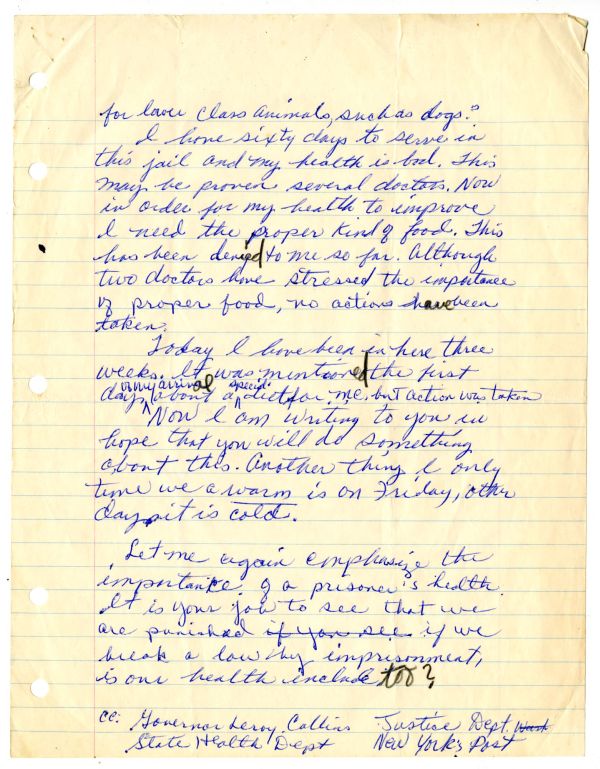 for lower class animals, such as dogs?
I have sixty days to serve in
this jail and my health is bad. This
may be proven several doctors. Now
in order for my health to improve
I need the proper kind of food. This
has been denied to me so far. Although
two doctors have stressed the importance
of proper food, no actions have been
taken.
Today I have been in here three
weeks. It was mentioned the first
day, on my arrival about a special diet for me, but action was taken
Now I am writing to you in
hope that you will do something
about this. Another thing I only
time we a warm is on Friday, other
days it is cold.
Let me again emphasize the
importance of a prisoner's health.
It is your job to see that we
are punished if you see if we
break a law by imprisonment,
is our health include too?
cc: Governor Leroy Collins Justice Dept. Wash
State Health Dept New York's Post